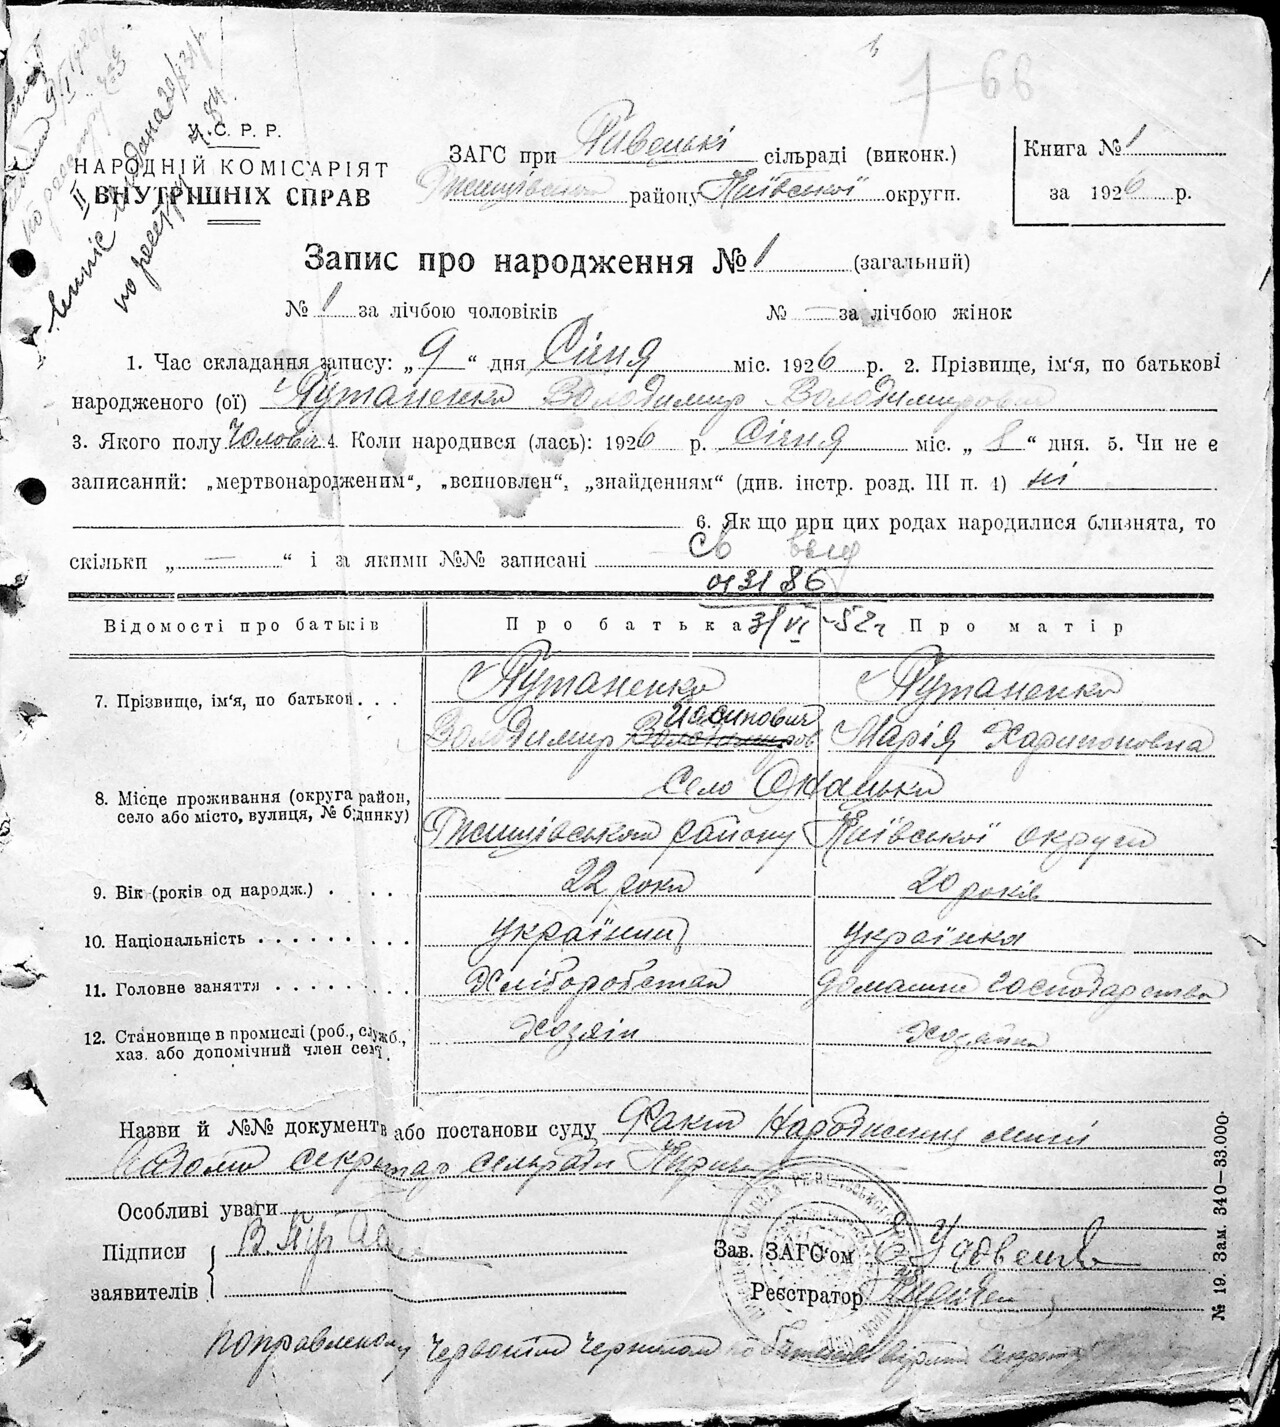 У.С.Р.Р.
НАРОДНІЙ КОМІСАРІЯТ
ВНУТРІШНІХ СПРАВ
ЗАГС при сільраді (виконк.)
району Київської округи.
Книга № 1
за 1926 р.
Запис про народження № 1 (загальний)
№ 1 за лічбою чоловіків № — за лічбою жінок
1. Час складання запису: „ 9 “ дня Січня міс. 1926 р. 2. Прізвище, ім‘я, по батькові
народженого (ої) Путаненко Володимир Володимирович
3. Якого полу Чоловіч 4. Коли народився (лась): 1926 р. Січня міс. „ 8 “ дня. 5. Чи не є
записаний: „мертвонародженим“, „всиновлен“, „знайденням“ (див. інстр. розд. III п. 4) ні
6. Як що при цих родах народилися близнята, то
скільки „ — “ і за якими №№ записані
Св выд
013186
31/VI–52г
Відомості про батьків Про батька Про матір
7. Прізвище, ім‘я, по батькові . . . Путаненко Путаненко
Йосипович
Володимир Володимиров Марія Харитоновна
8. Місце проживання (округа район,
село або місто, вулиця, № будинку)
Село
району Київської округи
9. Вік (років од народж.) . . . . 22 роки 20 років
10. Національність . . . . . . . . . українець українка
11. Головне заняття . . . . . . . . . Хліборобство домашнє господарство
12. Становище в промислі (роб., служб.,
хаз. або допомічний член сем‘ї. Хозяін Хозяйка
Назви й №№ документів або постанови суду Факт Народження мині
відомий секретар сельради
Особливі уваги
Підписи
заявителів
Зав. ЗАГС‘ом
Реєстратор
№ 19. Зам. 340—33.000.
поправленому Червоним Чернилом